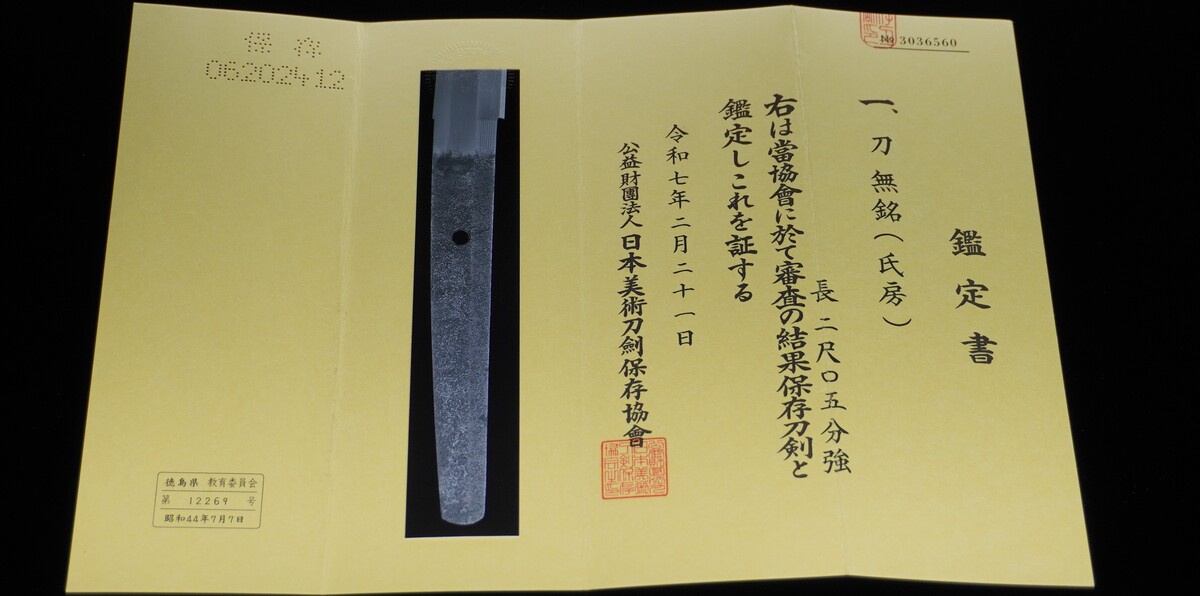 No 3036560
鑑定書
一、刀 無銘(氏房)
長二尺〇五分強
右は當協會に於て審査の結果保存刀剣と
鑑定しこれを証する
令和七年二月二十一日
公益財團法人日本美術刀劍保存協會
保存
06202412
徳島県 教育委員会
第 12269 号
昭和44年7月7日